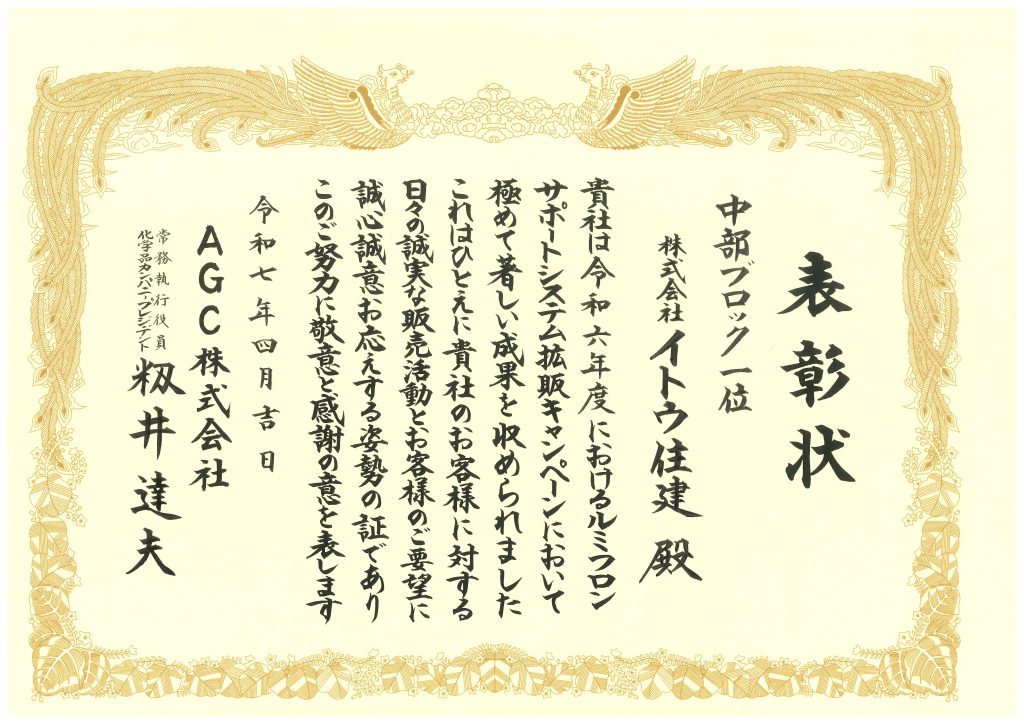 表彰状
中部ブロック一位
株式会社イトウ住建 殿
貴社は令和六年度におけるルミフロン
サポートシステム拡販キャンペーンにおいて
極めて著しい成果を収められました
これはひとえに貴社のお客様に対する
日々の誠実な販売活動とお客様のご要望に
誠心誠意お応えする姿勢の証であり
このご努力に敬意と感謝の意を表します
令和七年四月吉日
AGC株式会社
常務執行役員
化学品カンパニープレジデント
籾井達夫